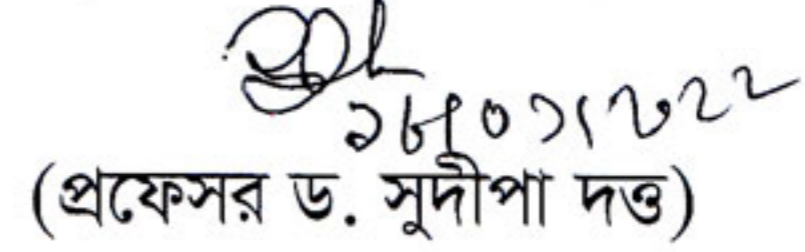 ১৮/০১/২০২২
(প্রফেসর ড. সুদীপা দত্ত)